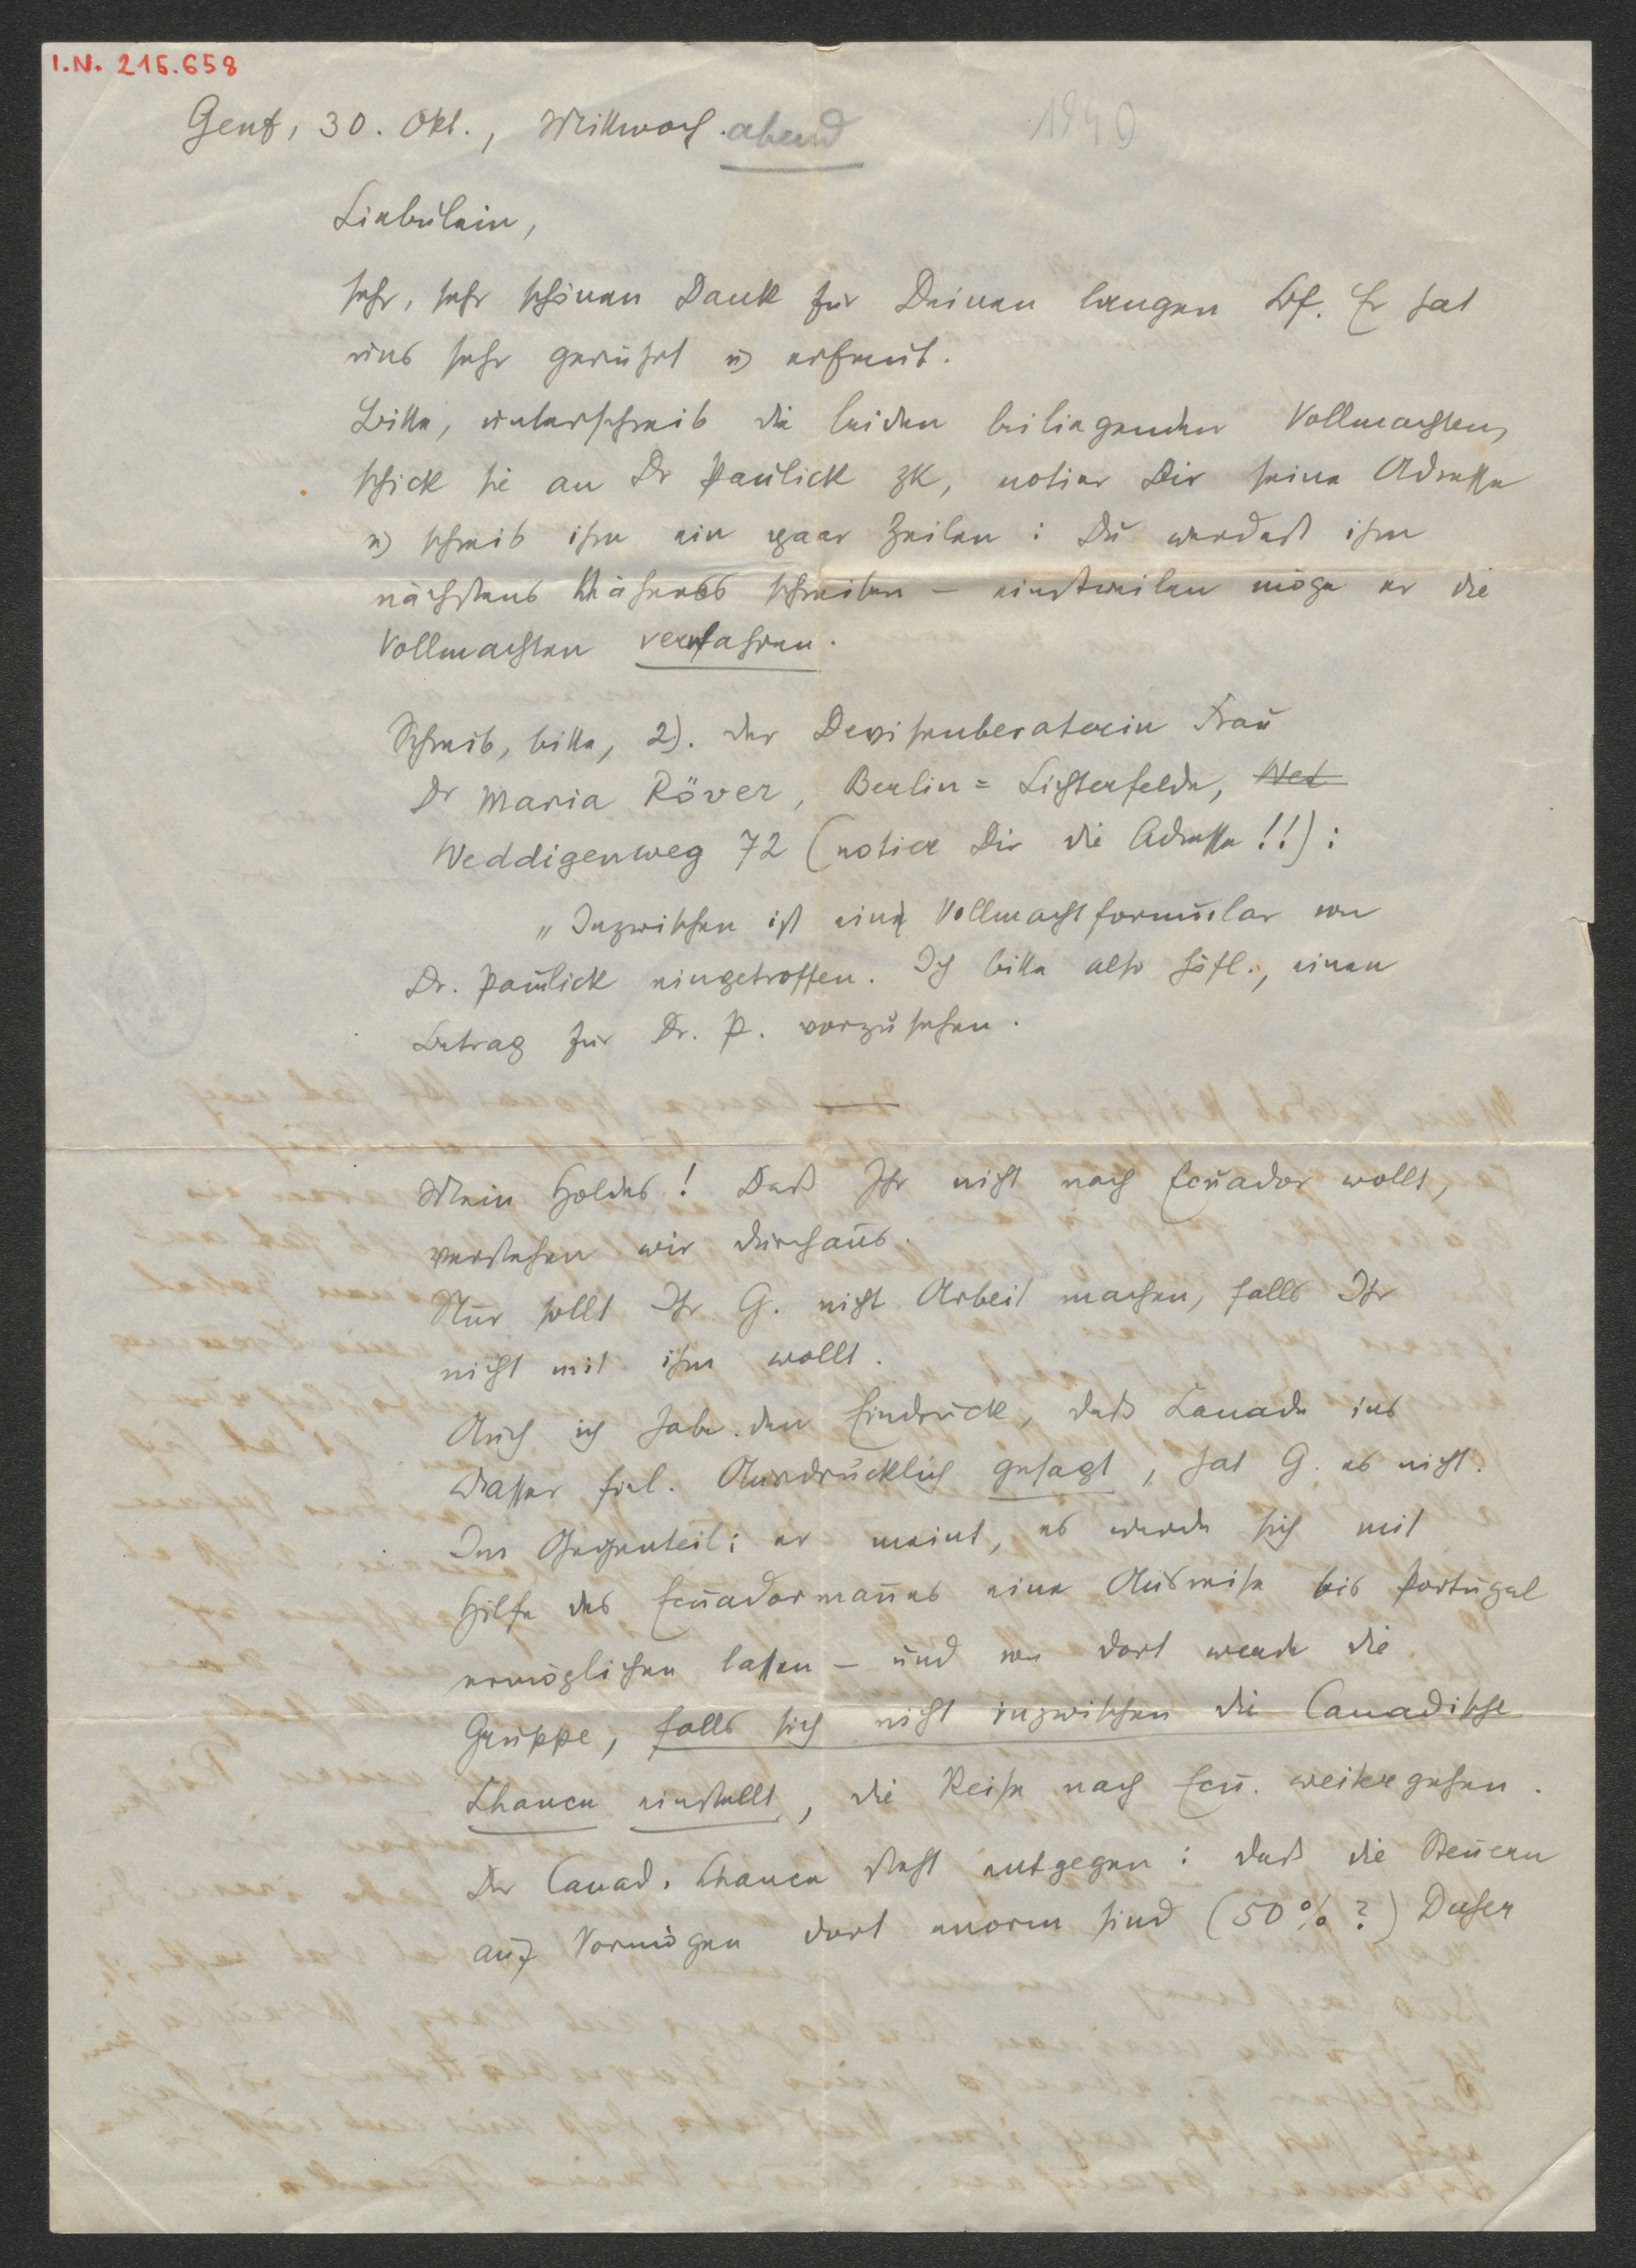 I.N. 215.658
Genf, 30. Okt., Mittwoch abend
1940
Liebulein,
sehr, sehr schönen Dank für Deinen langen Bf. Er hat
uns sehr gerührt u) erfreut.
Bitte, unterschreib die beiden beiliegenden Vollmachten,
schick sie an Dr Paulick zk, notier Dir seine Adresse
u) schreib ihm ein paar Zeilen: Du werdest ihm
nächstens Näheres schreiben – einstweilen möge er die
Vollmachten verwahren.
Schreib, bitte, 2). der Devisenberaterin Frau
Dr Maria Röver, Berlin = Lichterfelde, Wed
Weddigenweg 72 (notier Dir die Adresse!!):
„Inzwischen ist ein Vollmachtformular von
Dr. Paulick eingetroffen. Ich bitte also höfl., einen
Betrag für Dr. P. vorzusehen.
Mein Holdes! Daß Ihr nicht nach Ecuador wollt,
verstehen wir durchaus.
Nur sollt Ihr G. nicht Arbeit machen, falls Ihr
nicht mit ihm wollt.
Auch ich habe den Eindruck, daß Canada ins
Wasser fiel. Ausdrücklich gesagt, hat G. es nicht.
Im Gegenteil: er meint, es werde sich mit
Hilfe des Ecuadormannes eine Ausreise bis Portugal
ermöglichen lassen – und von dort werde die
Gruppe, falls sich nicht inzwischen die Canadische
Chance einstellt, die Reise nach Ecu. weitergehen.
Der Canad. Chance steht entgegen: daß die Steuern
auf Vermögen dort enorm sind (50 % ?) Daher